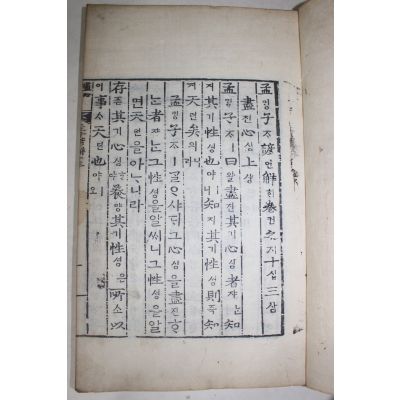 孟ᄆᆡᆼ子ᄌᆞ諺언解ᄒᆡ卷권之지十십三삼
盡진心심上샹
孟ᄆᆡᆼ子ᄌᆞㅣ曰왈盡진其기心심者쟈ᄂᆞᆫ知
지其기性셩也야ㅣ니知지其기性셩則즉知
지天텬矣의니라
孟ᄆᆡᆼ子ᄌᆞㅣᄀᆞᆯᄋᆞ샤ᄃᆡ그心심을盡진ᄒᆞ
ᄂᆞᆫ者쟈ᄂᆞᆫ그性셩을알써니그性셩을알
면天텬을아ᄂᆞ니라
存존其기心심ᄒᆞ야養양其기性셩은所소以
이事ᄉᆞ天텬也야ㅣ오